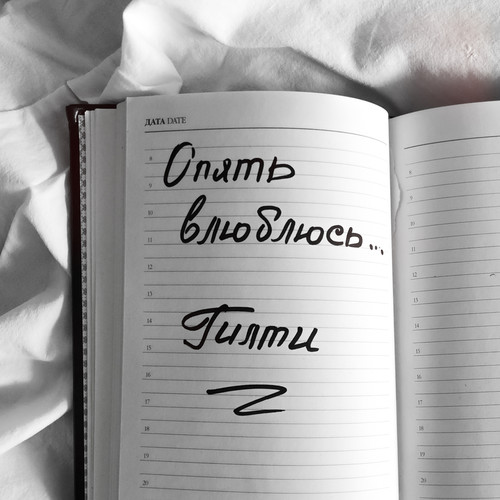 ДАТА/DATE
8
Опять
9
10
влюблюсь...
11
12
13
14
Гилти
15
16
17
18
19
20
8
9
10
11
12
13
14
15
16
17
18
19
20